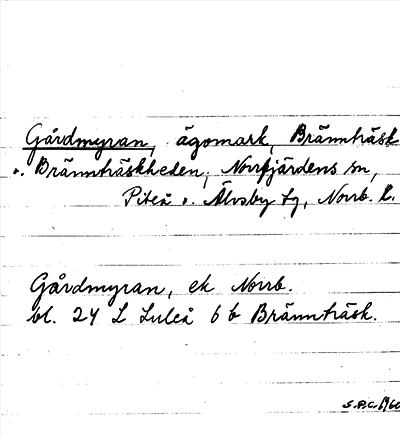 Gårdmyran, ägomark, Brännträsk
o. Brännträskheden, Norrfjärdens sn,
Piteå o. Älvsby tg, Norrb. l.
Gårdmyran, ek Norrb.
bl. 24 L Luleå 6 b Brännträsk.
S.P.C. 1960